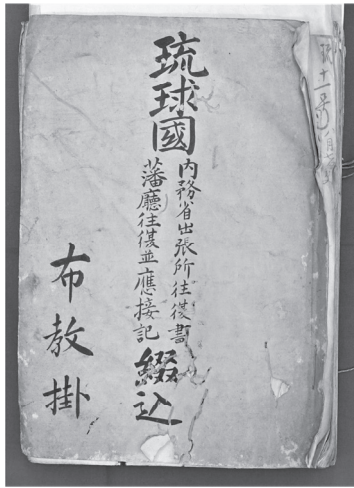 琉球國
内務省出張所往復書
藩廳往復並應接記
綴込
布教掛